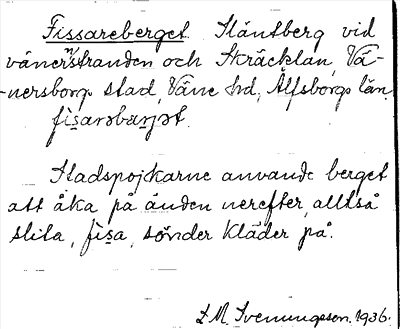 Fissareberget. Släntberg vid
vänernstranden och Skräcklan, Vä-
-nersborgs stad, Väne hd, Älfsborgs län.
fis̱arəbærjət.
Stadspojkarne använde berget
att åka på änden nerefter, alltså
slita, fisa, sönder kläder på.
L. M. Svenungsson. 1936.